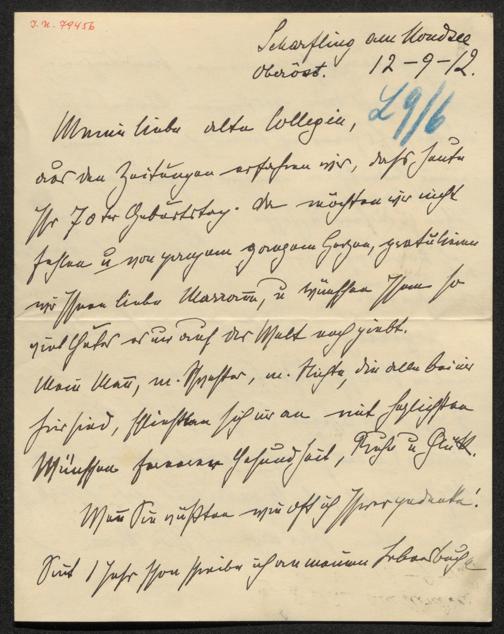 J. N. 79456
Scharfling am Mondsee
Oberöst. 12-9-12.
L 9/6
Meine liebe alte Collegin,
aus den Zeitungen erfahren wir, dass heute
Ihr 70ter Geburtstag. Da möchten wir nicht
fehlen u von ganzem Herzen, gratulieren
wir Ihnen liebe u wünschen Ihnen so
viel Gutes es nur auf der Welt noch giebt.
Mein Mann, m. Schwester, m. Nichte, die alle bei mir
hier sind, schließen sich mir an mit herzlichsten
Wünschen fernerer Gesundheit, Ruhe u Glück.
Wenn Sie wüßten wie oft ich Ihrer gedenke!
Seit 1 Jahr schon schreibe ich an meinem Lebensbuche